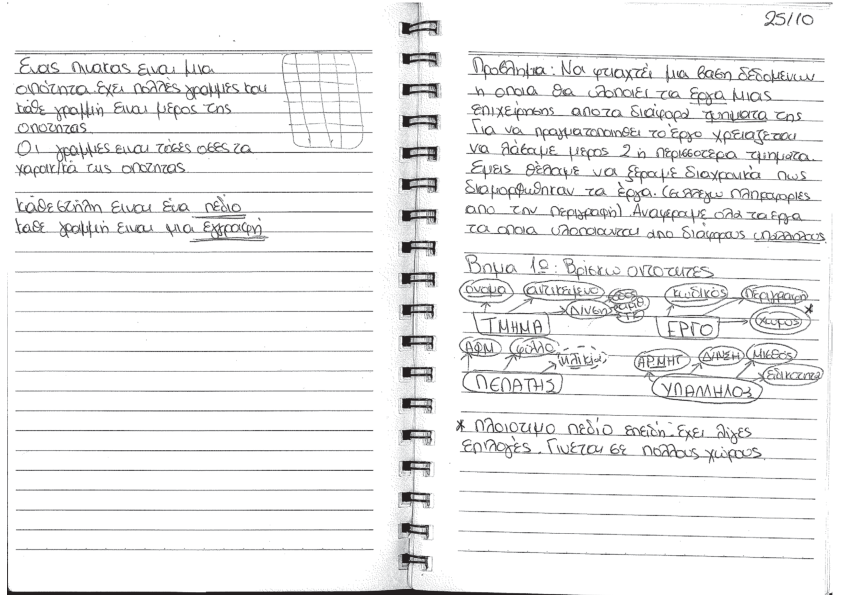 Ενας πινακας ειναι μια
οντότητα. έχει πολλές γραμμες και
κάθε γραμμή ειναι μέρος της
οντοτητας.
Οι γραμμες ειναι τόσες οσες τα
χαρακ/κά της οντότητας.
κάθε στήλη ειναι ένα πεδίο
καθε γραμμή ειναι μια εγγραφή
25/10
Προβλημα: Να φτιαχτεί μια βαση δεδομενων
η οποια θα υλοποιεί τα έργα μιας
επιχείρησης απο τα διάφορα τμηματα της
Για να πραγματοποιηθει το έργο χρειαζεται
να λάβουμε μερος 2 ή περισσοτερα τμηματα.
Εμεις θέλουμε να ξέρουμε διαχρονικα πως
διαμορφωθηκαν τα έργα. (συλλεγω πληροφορίες
απο την περιγραφή) Αναφερουμε ολα τα εργα
τα οποια υλοποιουνται απο διάφορους υπαλληλους.
Βημα 1ο: Βρίσκω οντοτητες
όνομα αντικείμενο κωδικός περιγραφη
Δ/ΝΣΗ οδος αριθ Τ.Κ χωρος *
ΤΜΗΜΑ ΕΡΓΟ
ΑΦΜ φύλλο ηλικια ΑΡΜΗΤ Δ/ΝΣΗ Μισθός
ειδικοτητα
ΠΕΛΑΤΗΣ ΥΠΑΛΛΗΛΟΣ
* Πλειοτιμο πεδίο επειδή έχει λίγες
επιλογές. Γινεται σε πολλους χώρους.